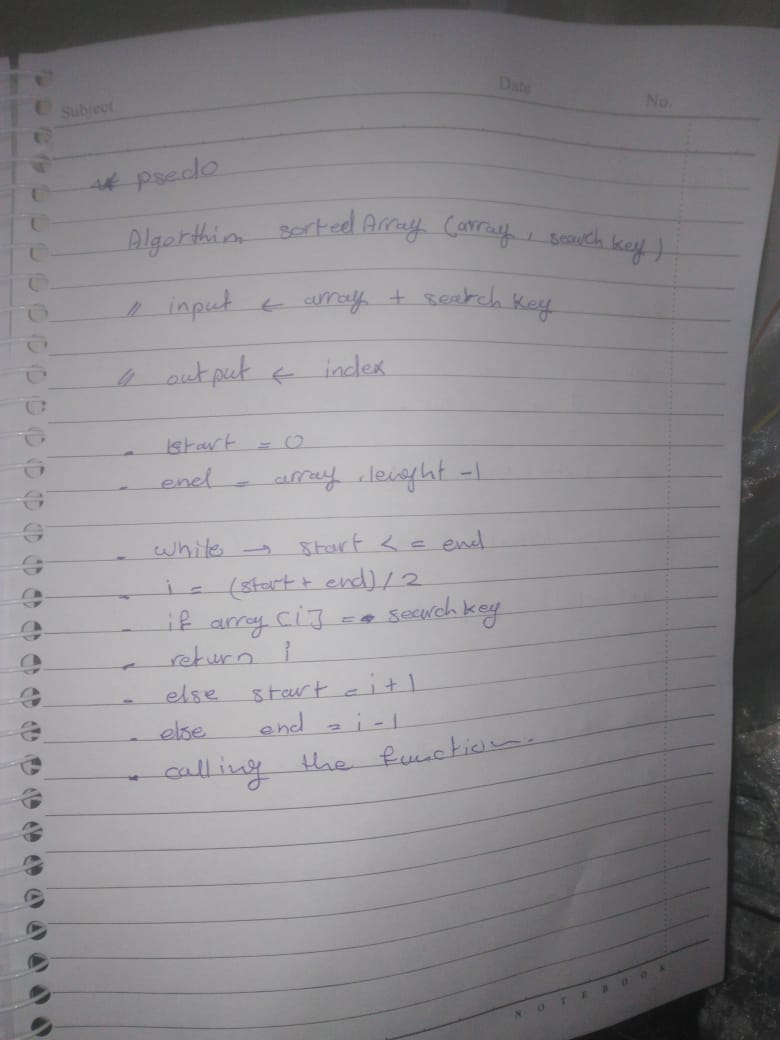 Subject
Date
No.
* psedo
Algorthim sortedArray (array, search key)
// input ← array + search key
// output ← index
- start = 0
- end = array.leinght -1
- while → start <= end
- i = (start + end) / 2
- if array [i] == search key
- return i
- else start = i+1
- else end = i-1
- calling the function.
NOTEBOOK